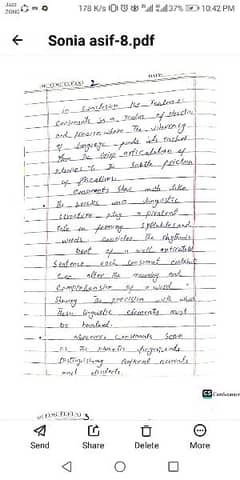 Jazz
ZONG
178 K/s
37%
10:42 PM
Sonia asif-8.pdf
2
In conclusion the realm
Consonants is a realm of structure
and precision where the vibrancy
of language finds its
the crisp articulation of
to the subtle friction
of fricatives.
Consonants that much like
the bricks in a linguistic
structure play a pivotal
role in forming syllables and
words. the rhythmic
beat of a well articulated
Sentence. each consonant
can alter the meaning and
Comprehension of a word
the precision with which
these linguistic elements must
be handled.
Moreover Consonants serve
as the phonetic fingerprints
Distinguishing regional accents
and dialects.
CS CamScanner
3
Send
Share
Delete
More